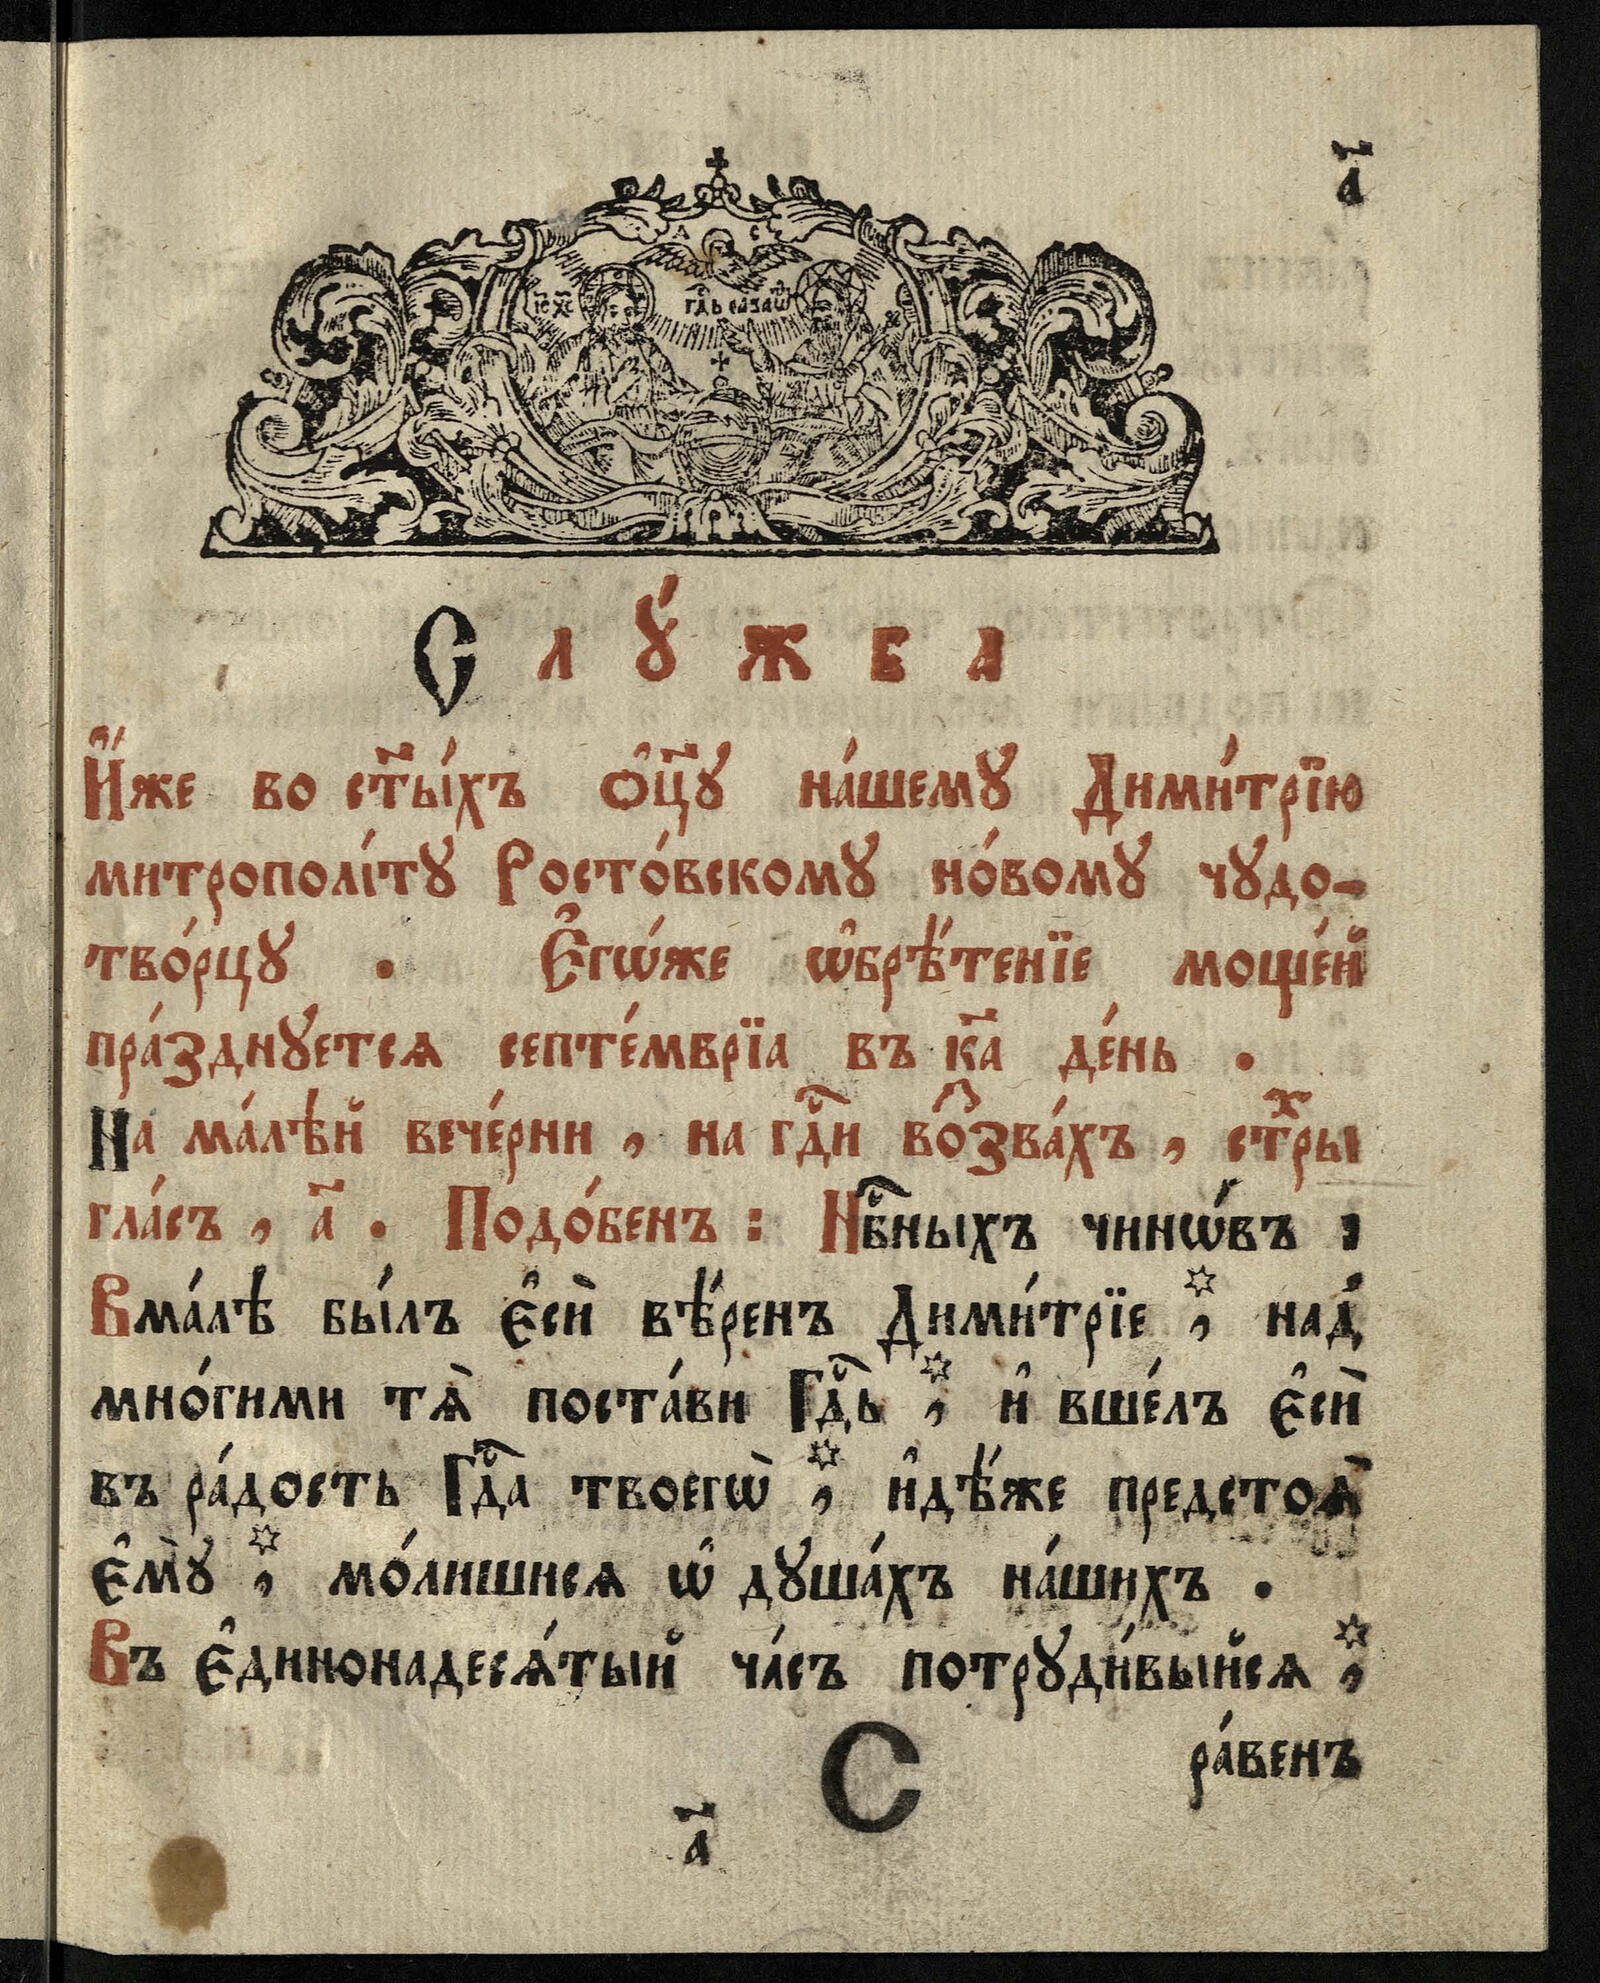 а҃
Д С
І҃С Х҃С Гдⷭ҇ь саваѡ́ѳъ
Слꙋ́жба
И҆́же во ст҃ы́хъ ѻ҆ц҃ꙋ̀ на́шемꙋ Дими́трїю
митрополі́тꙋ Росто́вскомꙋ но́вомꙋ чꙋдо-
тво́рцꙋ . Є҆гѡ́же ѡ҆брѣ́тенїе моще́й
пра́зднꙋетсѧ септе́мврїа въ к҃а де́нь .
На ма́лѣй вече́рни , на гдⷭ҇и во̑зва́хъ , стⷯры
гла́съ , а҃ . Подо́бенъ : Нбⷭ҇ныхъ чинѡ́въ :
Вма́лѣ бы́лъ є҆сѝ вѣ́ренъ Дими́трїе * , над̾
мно́гими тѧ̀ поста́ви Гдⷭ҇ь * , и҆ вше́лъ є҆сѝ
въ ра́дость Гдⷭ҇а твоегѡ̀ * , и҆дѣ́же предстоѧ̀
є҆мꙋ̀ * , мо́лишисѧ ѡ҆ дꙋша́хъ на́шихъ .
Въ є҆динонадесѧ́тый ча́съ потрꙋди́выйсѧ * ,
ра́венъ
С
а҃